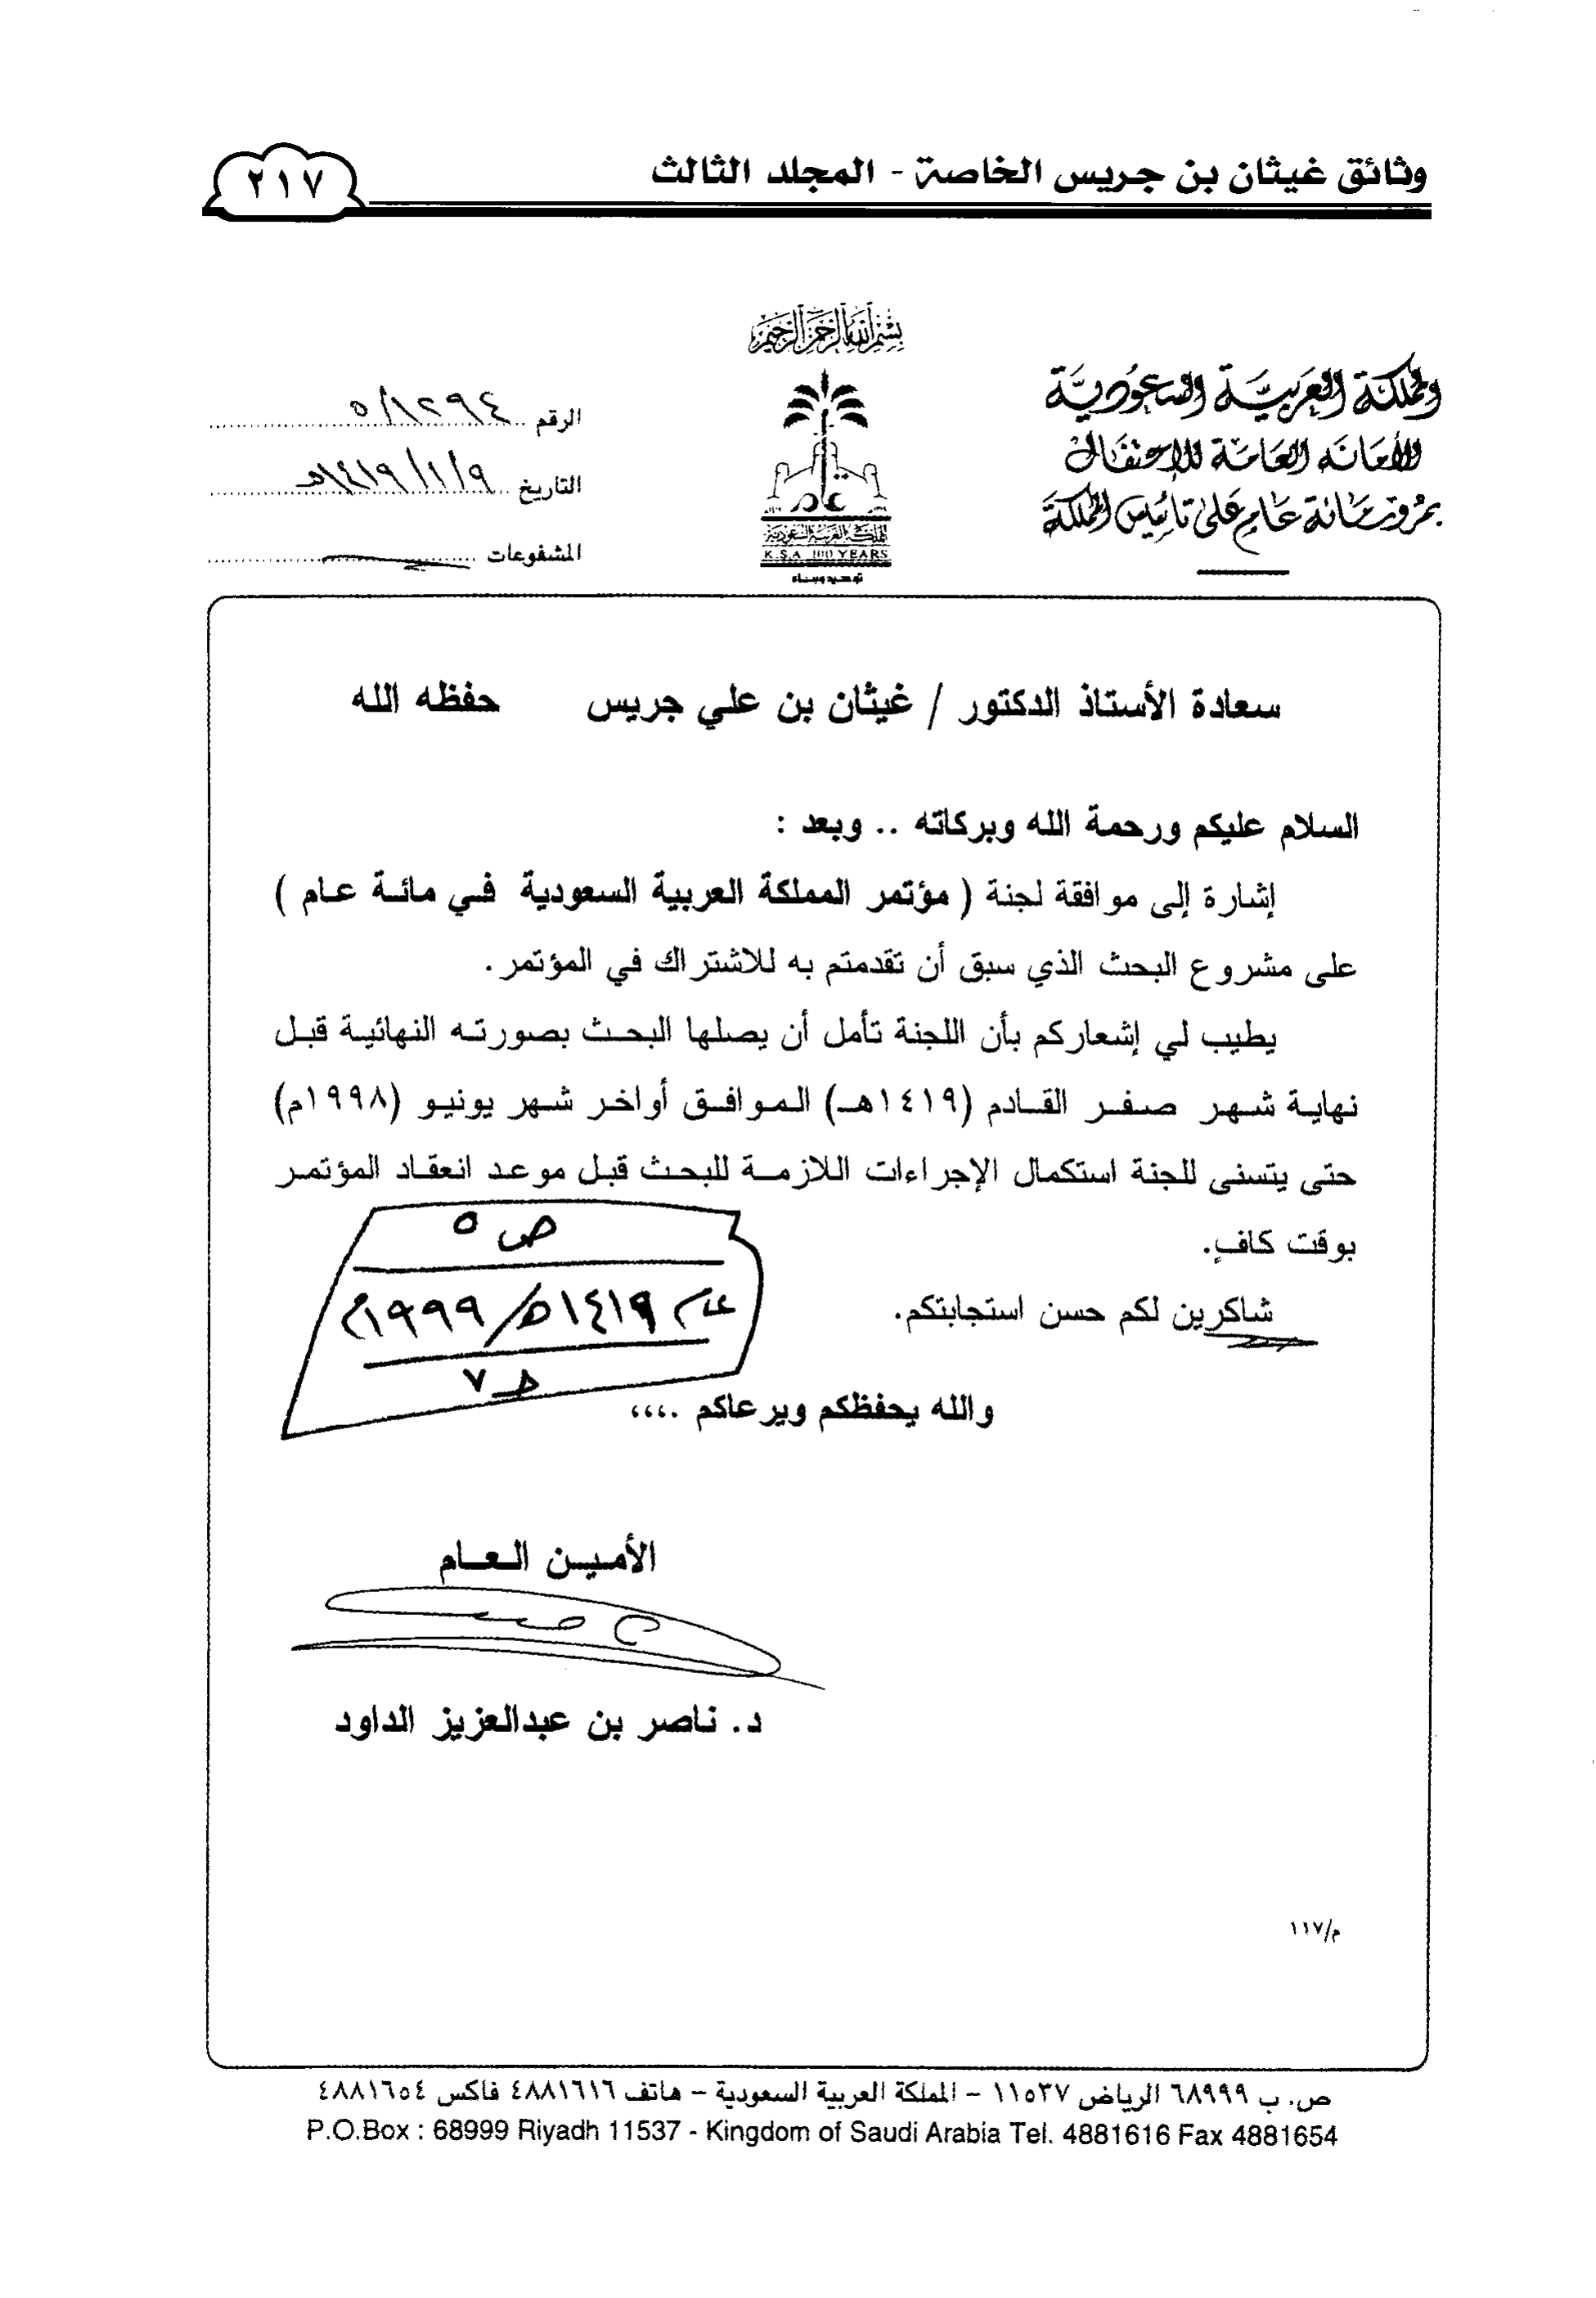 وثائق غيثان بن جريس الخاصة - المجلد الثالث
٢١٧
بسم الله الرحمن الرحيم
المملكة العربية السعودية
الأمانة العامة للاحتفال
بمرور مائة عام على تأسيس المملكة
الرقم ٥/١٢٩٤
التاريخ ١٤١٩/١/٩هـ
المشفوعات
المملكة العربية السعودية
K.S.A 100 YEARS
توحيد وبناء
سعادة الأستاذ الدكتور / غيثان بن علي جريس حفظه الله
السلام عليكم ورحمة الله وبركاته .. وبعد :
إشارة إلى موافقة لجنة ( مؤتمر المملكة العربية السعودية في مائة عام )
على مشروع البحث الذي سبق أن تقدمتم به للاشتراك في المؤتمر.
يطيب لي إشعاركم بأن اللجنة تأمل أن يصلها البحث بصورته النهائية قبل
نهاية شهر صفر القادم (١٤١٩هـ) الموافق أواخر شهر يونيو (١٩٩٨م)
حتى يتسنى للجنة استكمال الإجراءات اللازمة للبحث قبل موعد انعقاد المؤتمر
بوقت كافٍ.
شاكرين لكم حسن استجابتكم.
ص ٥
عام ١٤١٩هـ/١٩٩٩م
والله يحفظكم ويرعاكم ،،،،
الأمين العام
د. ناصر بن عبدالعزيز الداود
م/١١٧
ص. ب ٦٨٩٩٩ الرياض ١١٥٣٧ - المملكة العربية السعودية - هاتف ٤٨٨١٦١٦ فاكس ٤٨٨١٦٥٤
P.O.Box : 68999 Riyadh 11537 - Kingdom of Saudi Arabia Tel. 4881616 Fax 4881654